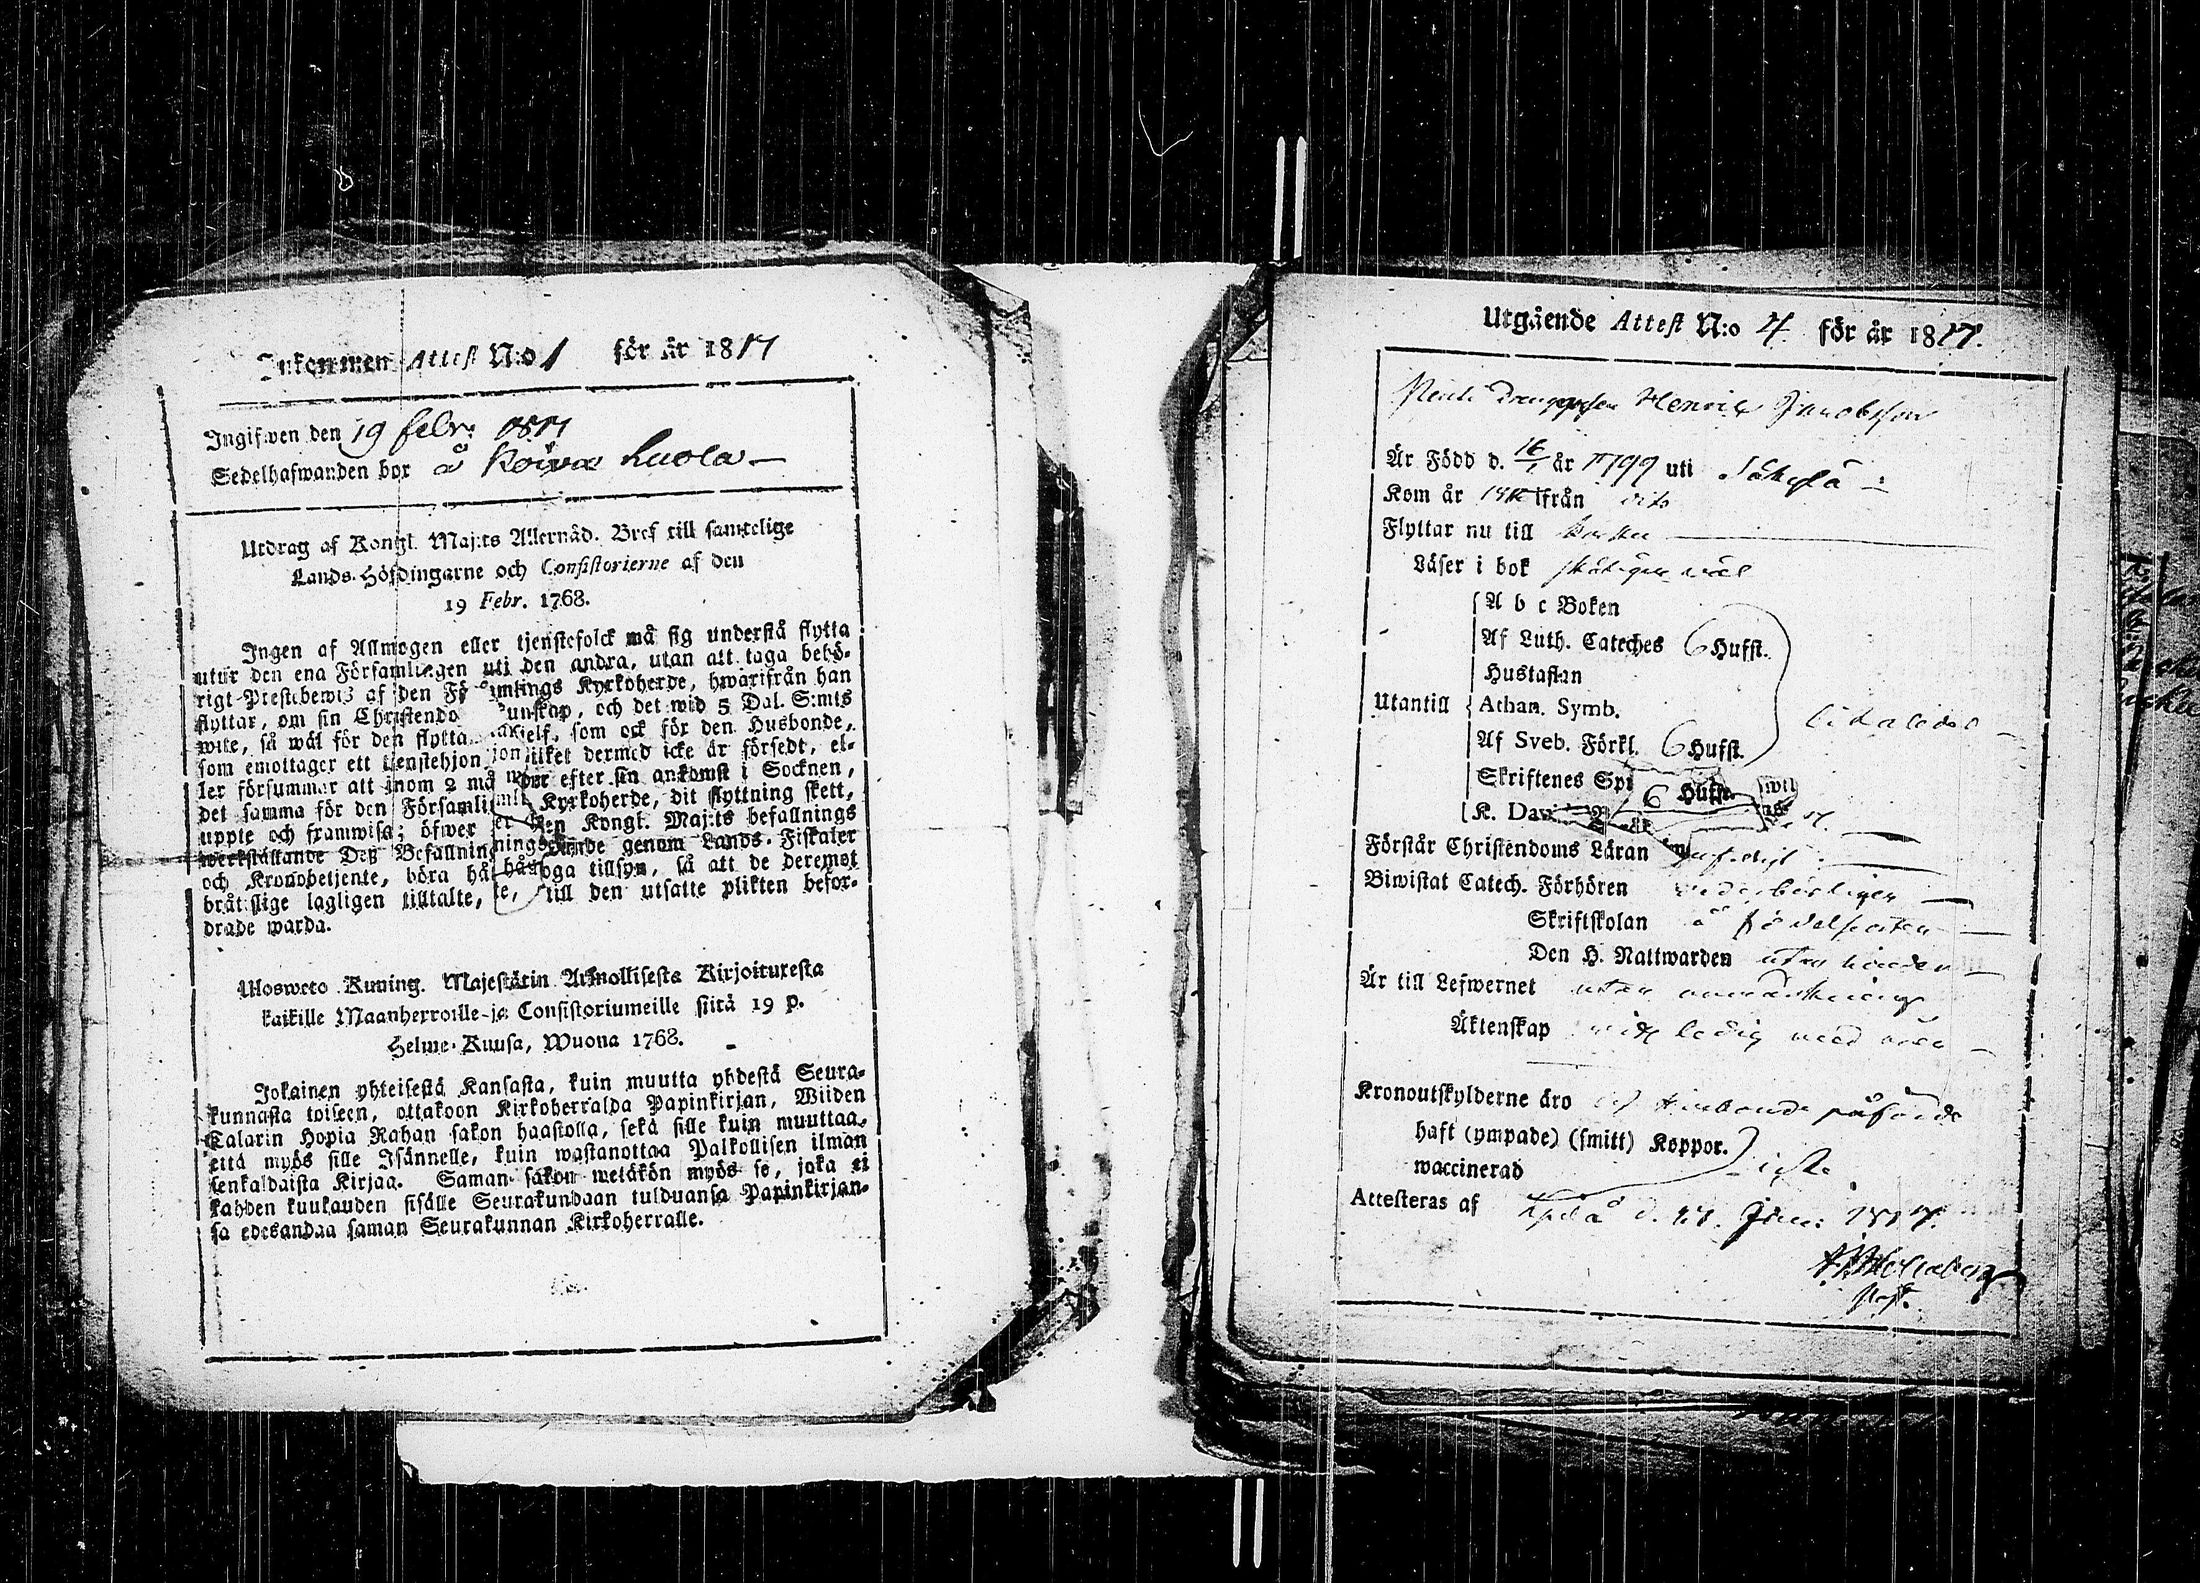 Inkommen Attest N:o 1 för år 1817
Ingifwen den 19 febr: 1817
Sedelhafwanden bor å Koiva luola
Utdrag af Kongl. Maj:ts Allernåd. Bref till samtelige
Lands-Höfdingarne och Consistorierne af den
19 Febr. 1768.
Ingen af Allmogen eller tjenstefolck må sig understå flytta
utur den ena Församlingen uti den andra, utan att taga behö-
rigt Prestebewis af den Fö mlings Kyrkoherde, hwarifrån han
flyttar, om sin Christendo unskap, och det wid 5 Dal. S:mts
wite, så wäl för den flytta sielf, som ock för den Husbonde,
som emottager ett tjenstehjon ilket dermed icke är försedt, el-
ler försummar att inom 2 må der efter sin ankomst i Socknen,
det samma för den Församli Kyrkoherde, dit flyttning skett,
uppte och framwisa; öfwer en Kongl. Maj:ts befallnings
werkställande Deß Befallning de genom Lands-Fiskaler
och Kronobetjente, böra hå oga tillsyn, så att de deremot
bråtslige lagligen tilltalte, till den utsatte plikten befor-
drade warda.
Ulosweto Kuning. Majestätin Armollisesta Kirjoituxesta
kaikille Maanherroille ja Consistoriumeille siitä 19 p.
Helme-Kuusa, Wuona 1768.
Jokainen yhteisestä Kansasta, kuin muutta yhdestä Seura-
kunnasta toiseen, ottakoon Kirkoherralda Papinkirjan, Wiiden
Talarin Hopia Rahan sakon haastolla, sekä sille kuin muuttaa,
että myös sille Isännelle, kuin wastanottaa Palkollisen ilman
senkaldaista Kirjaa. Saman sakon wetäkön myös se, joka ei
kahden kuukauden sisälle Seurakundaan tulduansa Papinkirjan-
sa edesandaa saman Seurakunnan Kirkoherralle.
Utgående Attest N:o 4. för år 1817.
Henrik Jacobsson
Är Född d. 16/1 år 1799 uti Säkylä
Kom år ifrån
Flyttar nu till
Läser i bok wäl
A b c Boken
Af Luth. Cateches 6 Hufst.
Hustaflan
Utantill Athan. Symb.
Af Sveb. Förkl. 6 Hufst.
Skriftenes Spr 6 Hufst.
K. Dav
Förstår Christendoms Läran
Biwistat Catech. Förhören wederbörligen
Skriftskolan å födelseorten
Den H. Nattwarden utan hinder
Är till Lefwernet utan anmärkning
Äktenskap ledig
Kronoutskylderne äro af Husbonde påförde
haft (ympade) (smitt) Koppor.
waccinerad
Attesteras af d. 1817.